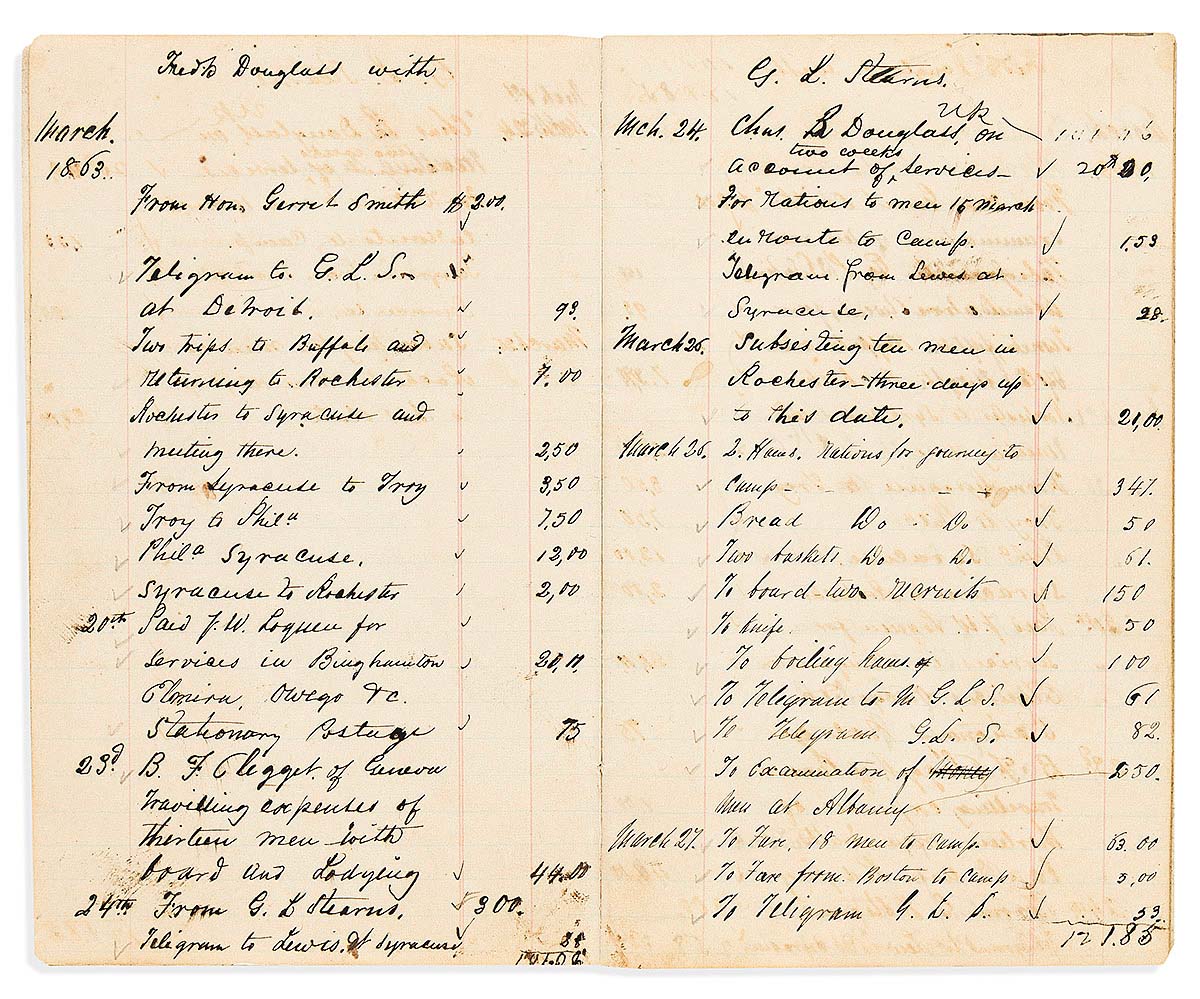 Fredk Douglass with
March.
1863.
From Hon. Gerret Smith $ 200.
Teligram to G. L. S.
at Detroit. 93.
Two trips to Buffalo and
returning to Rochester 7.00
Rochester to Syracuse and
meeting there. 2,50
From Syracuse to Troy 3,50
Troy to Phila 7,50
Phila Syracuse. 12,00
Syracuse to Rochester 2,00
20th Said J. W. Loguen for
services in Binghamton 20,
Elmira, Owego &c.
Stationary Postage 75
23d B. F. Clegget. of Geneva
travelling expenses of
thirteen men with
board and Lodging 44.00
24th From G. L Stearns. 300.
Teligram to Lewis. at Syracuse 28
G. L. Stearns.
Mch. 24. Chas. R Douglass, on
two weeks
account of services 20
For rations to men 15 March
enroute to camp. 1,53
Teligram from Lewis at
Syracuse, 28.
March 26. Subsisting ten men in
Rochester - three days up
to this date. 21,00.
March 26. 2. Hams. rations for journey to
camp - - - 347.
Bread Do Do 50
Two baskets Do Do. 61.
To board two recruits 150
To knife. 50
To boiling hams. 100
To Teligram to M G. L S. 61
To Teligram G. L. S. 82.
To Examination of money 250.
men at Albany
March 27. To Fare, 18 men to camp. 63.00
To Fare from Boston to camp 3,00
To Teligram G. L. S. 53.
121.85